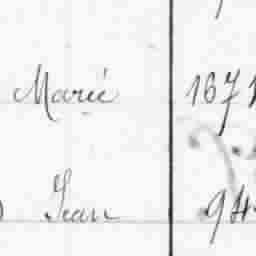 Marié 1671
Jean 94